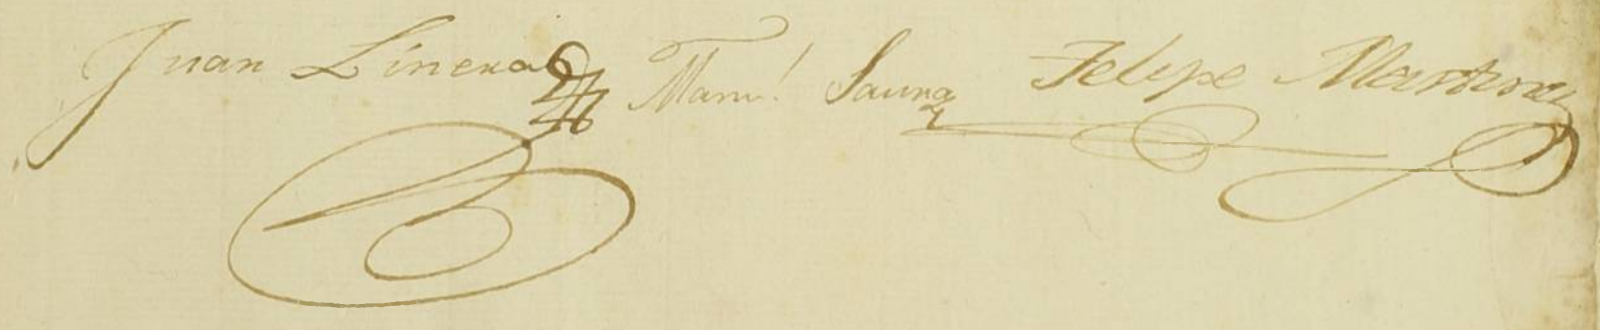 Juan Linera Man.l Sauna Felipe Martinez